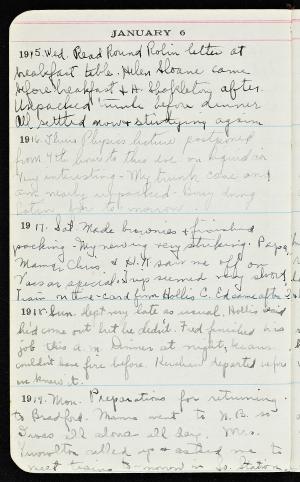 JANUARY 6
1915. Wed. Read Round Robin letter at
breakfast table. Helen Sloane came
before breakfast & H. after.
Unpacked trunk before dinner
All settled now & studying again
1916. Thurs Physics lecture postponed
from 4th hour to this eve on liquid air
Very interesting - My trunk came and
am nearly unpacked - Busy doing
Latin for to-morrow
1917. Sat. Made brownies & finished
packing. My new rug very striking. Papa,
Mama, Chris, & saw me off on
Vassar special. Trip seemed very short
Train on time - card from Hollis C. Ed came after
1918. Sun. Slept very late as usual. Hollis said
he'd come out but he didn't. Ted finished his
job this a.m. Dinner at night, because
couldn't have fire before. departed before
we knew it.
1919. Mon. Preparations for returning
to Bradford. Mama went to N.B. so
I was all alone all day. Mrs.
Knowlton called up & asked me to
meet trains to-morrow in So. Station